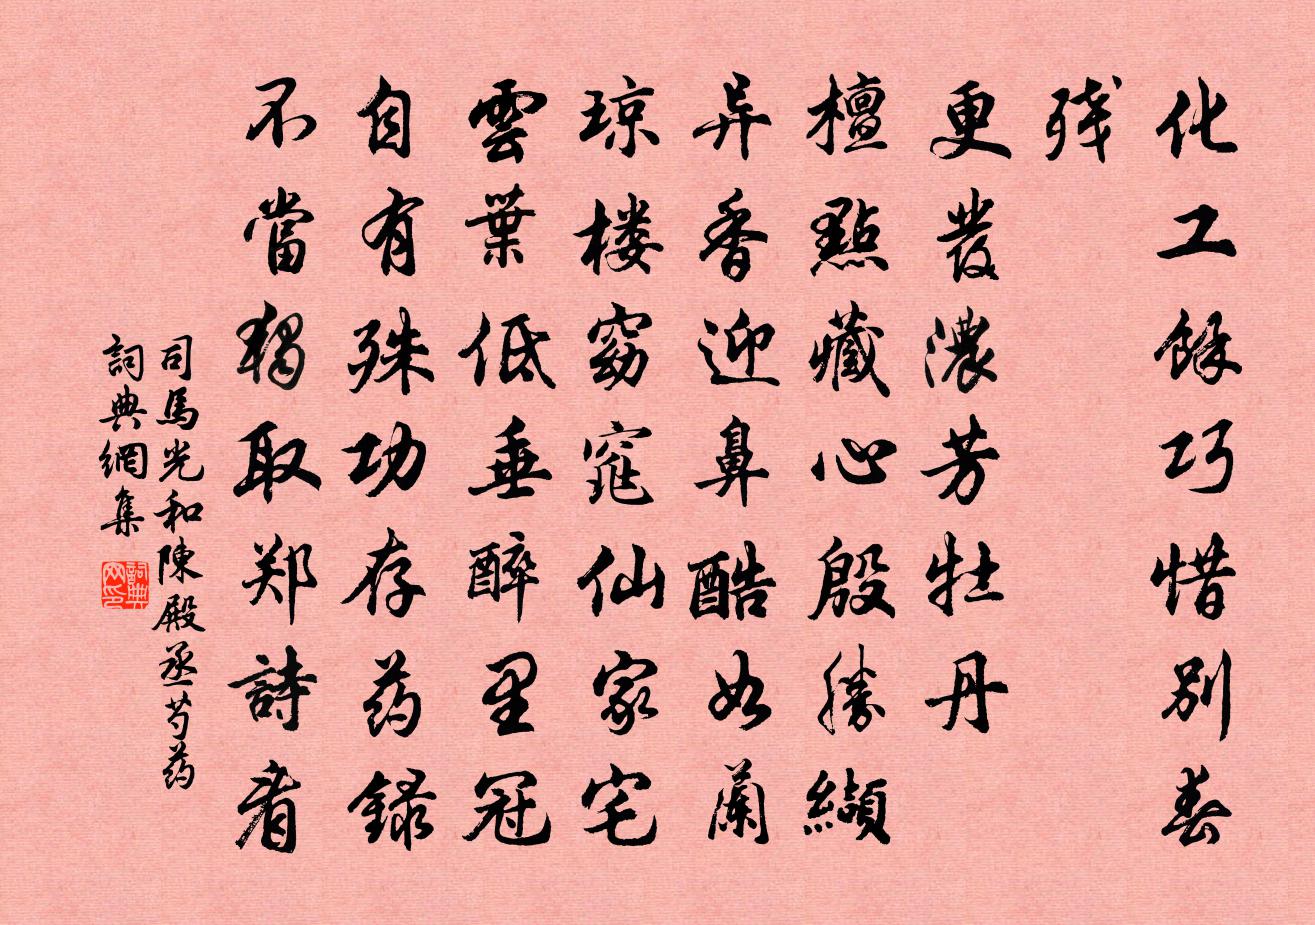 化工餘巧惜别春
残
更發濃芳牡丹
檀點藏心殷勝纈
异香迎鼻酷如蘭
琼楼窈窕仙家宅
雲葉低垂醉里冠
自有殊功存药録
不當獨取郑詩看
司馬光和陳殿丞芍药
詞典網集